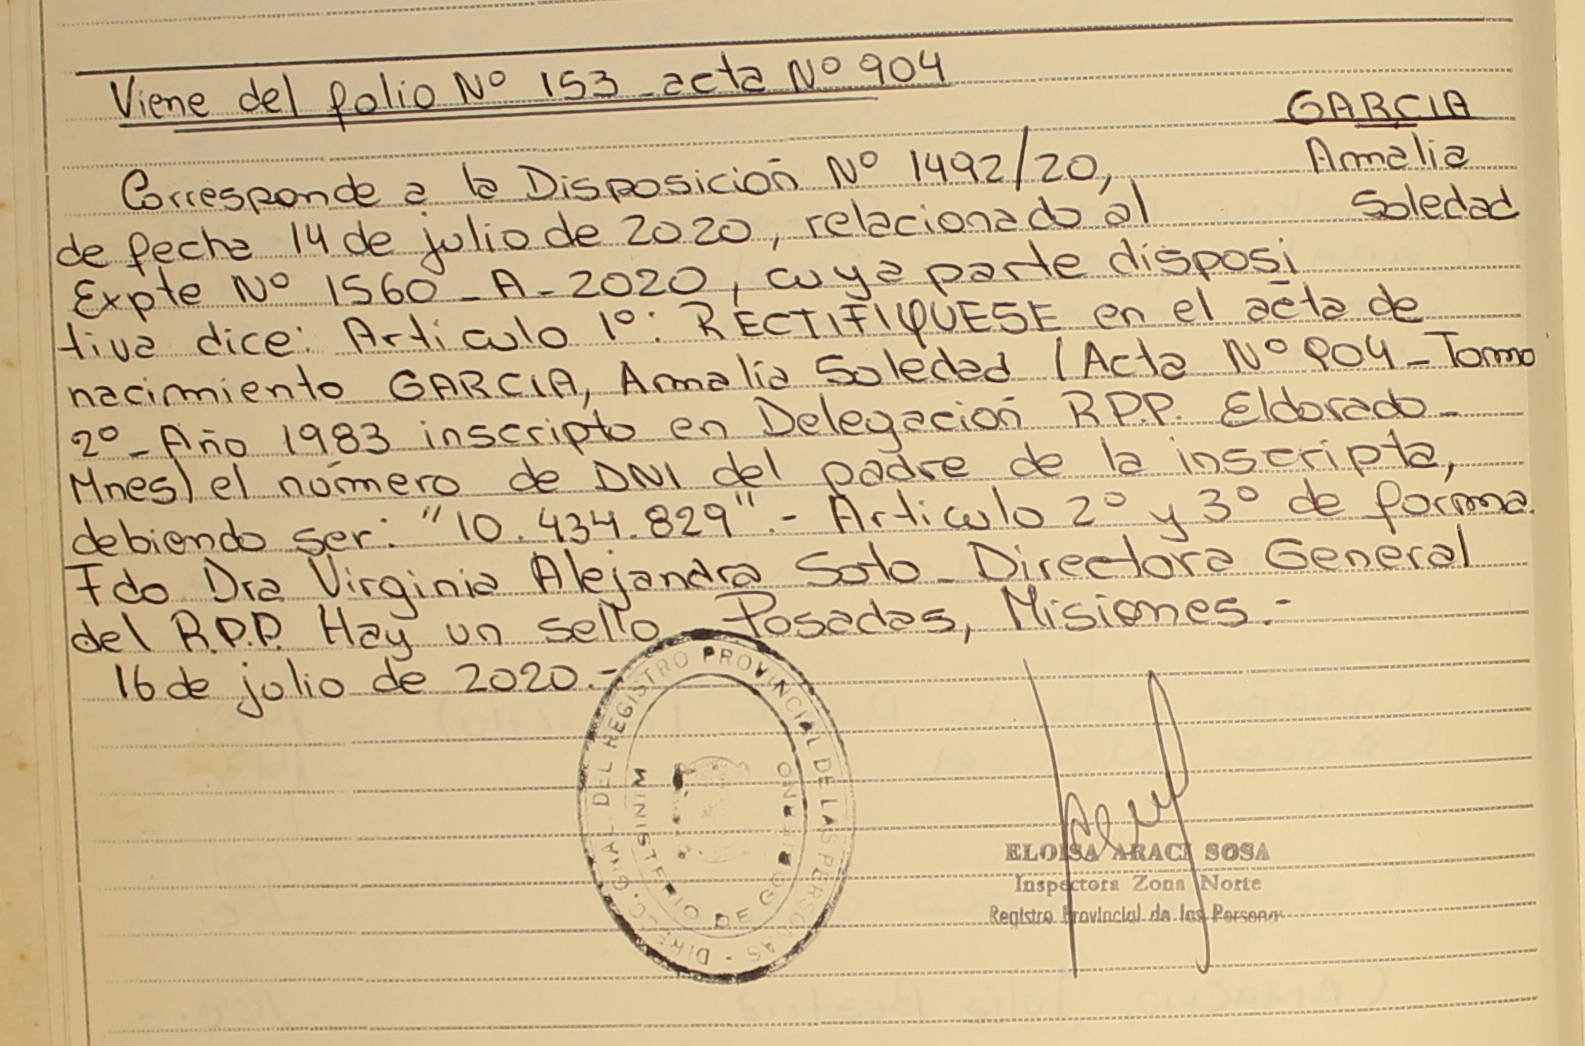 Viene del folio Nº 153 - acta Nº 904
GARCIA
Amalia
Soledad
Corresponde a la Disposición Nº 1492/20,
de fecha 14 de julio de 2020, relacionado al
Expte Nº 1560 - A - 2020, cuya parte disposi
tiva dice: Articulo 1º: RECTIFIQUESE en el acta de
nacimiento GARCIA, Amalia Soledad (Acta Nº 904 - Tomo
2º - Año 1983 inscripto en Delegación R.P.P. Eldorado -
Mnes) el número de DNI del padre de la inscripta,
debiendo ser: "10.434.829".- Articulo 2º y 3º de forma.
Fdo Dra Virginia Alejandra Soto - Directora General
del R.P.P. Hay un sello. Posadas, Misiones.-
16 de julio de 2020.-
DIRECC. GRAL. DEL REGISTRO PROVINCIAL DE LAS PERSONAS -
MINISTERIO DE GOBIERNO
ELOISA ARACI SOSA
Inspectora Zona Norte
Registro Provincial de las Personas